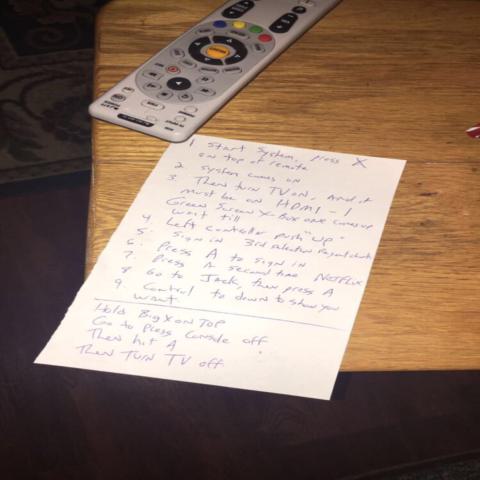 1 Start System, press X
on top of remote
2. System comes on
3. Then turn TV on, and it
must be on HDMI-1
Green Screen X-Box one comes up
4 wait till
5. Left controller push "up"
6. Sign in 3rd selection
7. Press A to sign in
8 Press A second time Notflix
9. Go to Jack, then press A
Control to down to show you
want
Hold Big X on TOP
Go to Press Console off
Then hit A
Then Turn TV off